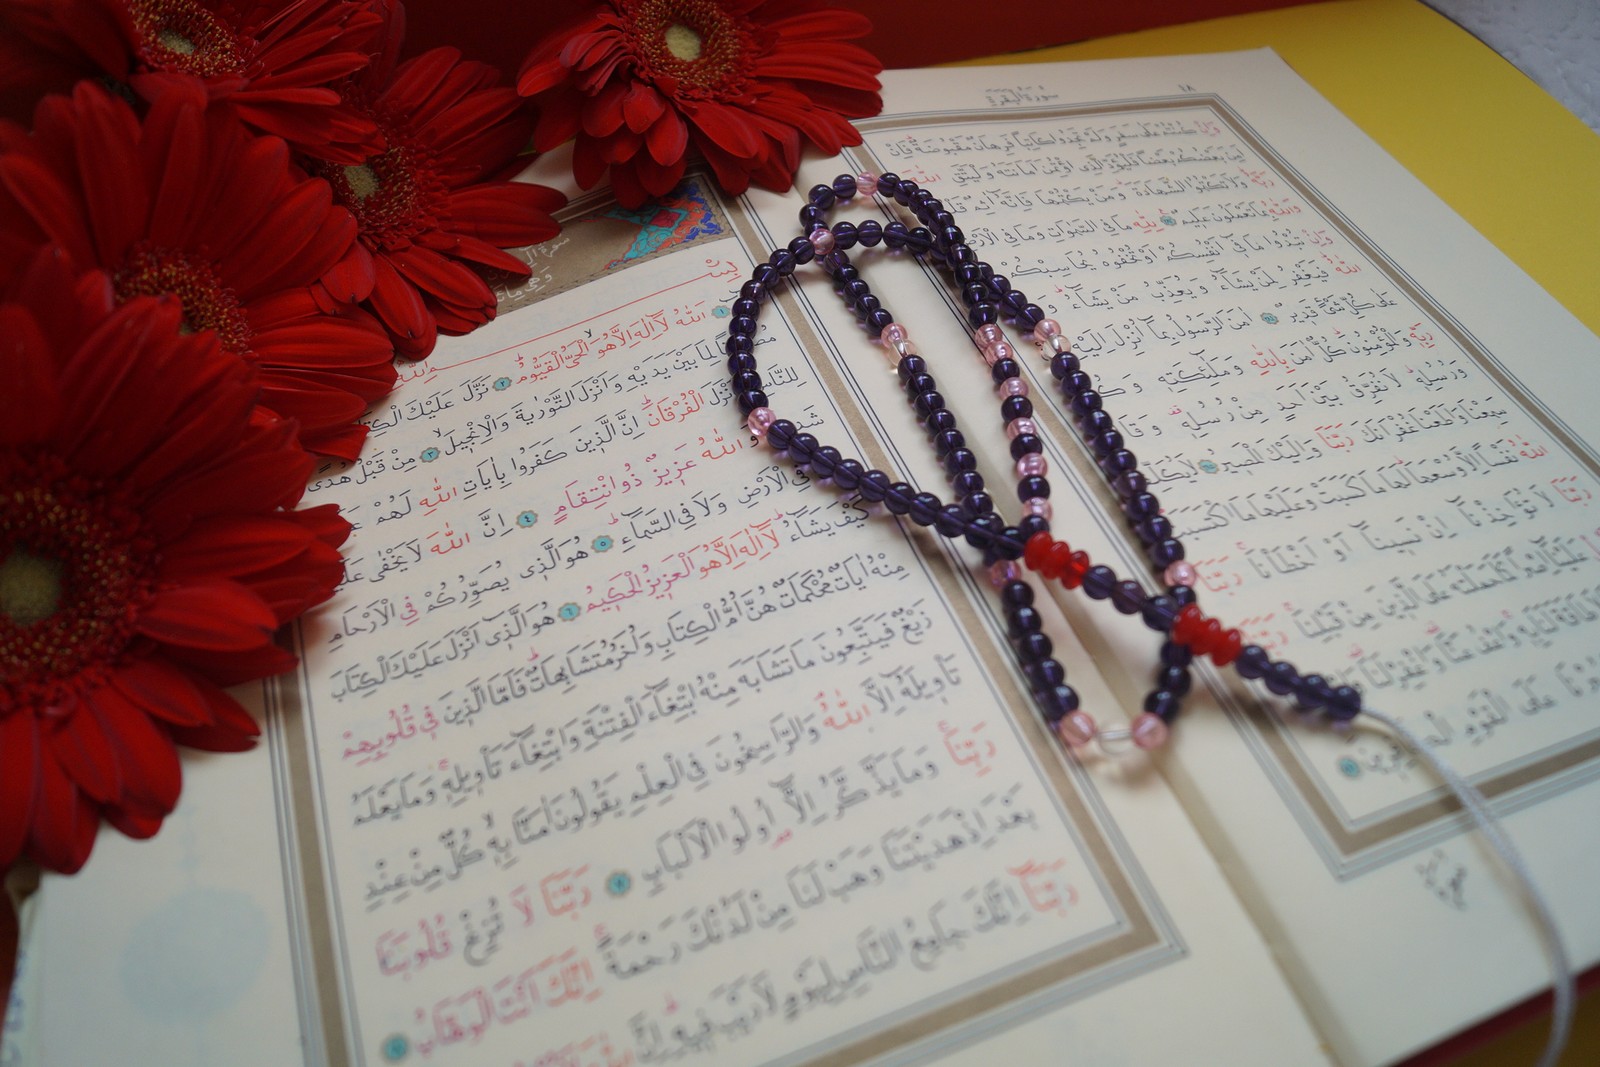 سورة البقرة
١٨
وَاِنْ كُنْتُمْ عَلٰى سَفَرٍ وَلَمْ تَجِدُوا كَاتِبًا فَرِهَانٌ مَقْبُوضَةٌ فَاِنْ
اَمِنَ بَعْضُكُمْ بَعْضًا فَلْيُؤَدِّ الَّذِي اؤْتُمِنَ اَمَانَتَهُ وَلْيَتَّقِ اللّٰهَ
رَبَّهُ وَلَا تَكْتُمُوا الشَّهَادَةَ وَمَنْ يَكْتُمْهَا فَاِنَّهُ اٰثِمٌ
وَاللّٰهُ بِمَا تَعْمَلُونَ عَلِيمٌ لِلّٰهِ مَا فِي السَّمٰوَاتِ وَمَا فِي الْاَرْضِ
وَاِنْ تُبْدُوا مَا فِي اَنْفُسِكُمْ اَوْ تُخْفُوهُ يُحَاسِبْكُمْ
اللّٰهُ فَيَغْفِرُ لِمَنْ يَشَاءُ وَيُعَذِّبُ مَنْ يَشَاءُ
عَلٰى كُلِّ شَيْءٍ قَدِيرٌ اٰمَنَ الرَّسُولُ بِمَا اُنْزِلَ اِلَيْهِ
رَبِّهِ وَالْمُؤْمِنُونَ كُلٌّ اٰمَنَ بِاللّٰهِ وَمَلٰئِكَتِهِ
وَرُسُلِهِ لَا نُفَرِّقُ بَيْنَ اَحَدٍ مِنْ رُسُلِهِ
سَمِعْنَا وَاَطَعْنَا غُفْرَانَكَ رَبَّنَا وَاِلَيْكَ الْمَصِيرُ لَا يُكَلِّفُ
اللّٰهُ نَفْسًا اِلَّا وُسْعَهَا لَهَا مَا كَسَبَتْ وَعَلَيْهَا مَا اكْتَسَبَتْ
رَبَّنَا لَا تُؤَاخِذْنَا اِنْ نَسِينَا اَوْ اَخْطَأْنَا رَبَّنَا
عَلَيْنَا اِصْرًا كَمَا حَمَلْتَهُ عَلَى الَّذِينَ مِنْ قَبْلِنَا رَبَّنَا
لَا طَاقَةَ لَنَا بِهِ وَاعْفُ عَنَّا وَاغْفِرْ لَنَا
عَلَى الْقَوْمِ الْكَافِرِينَ
بِسْمِ اللّٰهِ
اللّٰهُ لَا اِلٰهَ اِلَّا هُوَ الْحَيُّ الْقَيُّومُ ٢ نَزَّلَ عَلَيْكَ الْكِتَابَ
مُصَدِّقًا لِمَا بَيْنَ يَدَيْهِ وَاَنْزَلَ التَّوْرٰيةَ وَالْاِنْجِيلَ ٣ مِنْ قَبْلُ هُدًى
لِلنَّاسِ وَاَنْزَلَ الْفُرْقَانَ اِنَّ الَّذِينَ كَفَرُوا بِاٰيَاتِ اللّٰهِ لَهُمْ
شَدِيدٌ وَاللّٰهُ عَزِيزٌ ذُو انْتِقَامٍ ٤ اِنَّ اللّٰهَ لَا يَخْفٰى عَلَيْهِ
فِي الْاَرْضِ وَلَا فِي السَّمَاءِ ٥ هُوَ الَّذِي يُصَوِّرُكُمْ فِي الْاَرْحَامِ
كَيْفَ يَشَاءُ لَا اِلٰهَ اِلَّا هُوَ الْعَزِيزُ الْحَكِيمُ ٦ هُوَ الَّذِي اَنْزَلَ عَلَيْكَ الْكِتَابَ
مِنْهُ اٰيَاتٌ مُحْكَمَاتٌ هُنَّ اُمُّ الْكِتَابِ وَاُخَرُ مُتَشَابِهَاتٌ فَاَمَّا الَّذِينَ فِي قُلُوبِهِمْ
زَيْغٌ فَيَتَّبِعُونَ مَا تَشَابَهَ مِنْهُ ابْتِغَاءَ الْفِتْنَةِ وَابْتِغَاءَ تَأْوِيلِهِ وَمَا يَعْلَمُ
تَأْوِيلَهُ اِلَّا اللّٰهُ وَالرَّاسِخُونَ فِي الْعِلْمِ يَقُولُونَ اٰمَنَّا بِهِ كُلٌّ مِنْ عِنْدِ
رَبِّنَا وَمَا يَذَّكَّرُ اِلَّا اُولُوا الْاَلْبَابِ ٧ رَبَّنَا لَا تُزِغْ قُلُوبَنَا
بَعْدَ اِذْ هَدَيْتَنَا وَهَبْ لَنَا مِنْ لَدُنْكَ رَحْمَةً اِنَّكَ اَنْتَ الْوَهَّابُ
رَبَّنَا اِنَّكَ جَامِعُ النَّاسِ لِيَوْمٍ لَا رَيْبَ فِيهِ اِنَّ اللّٰهَ